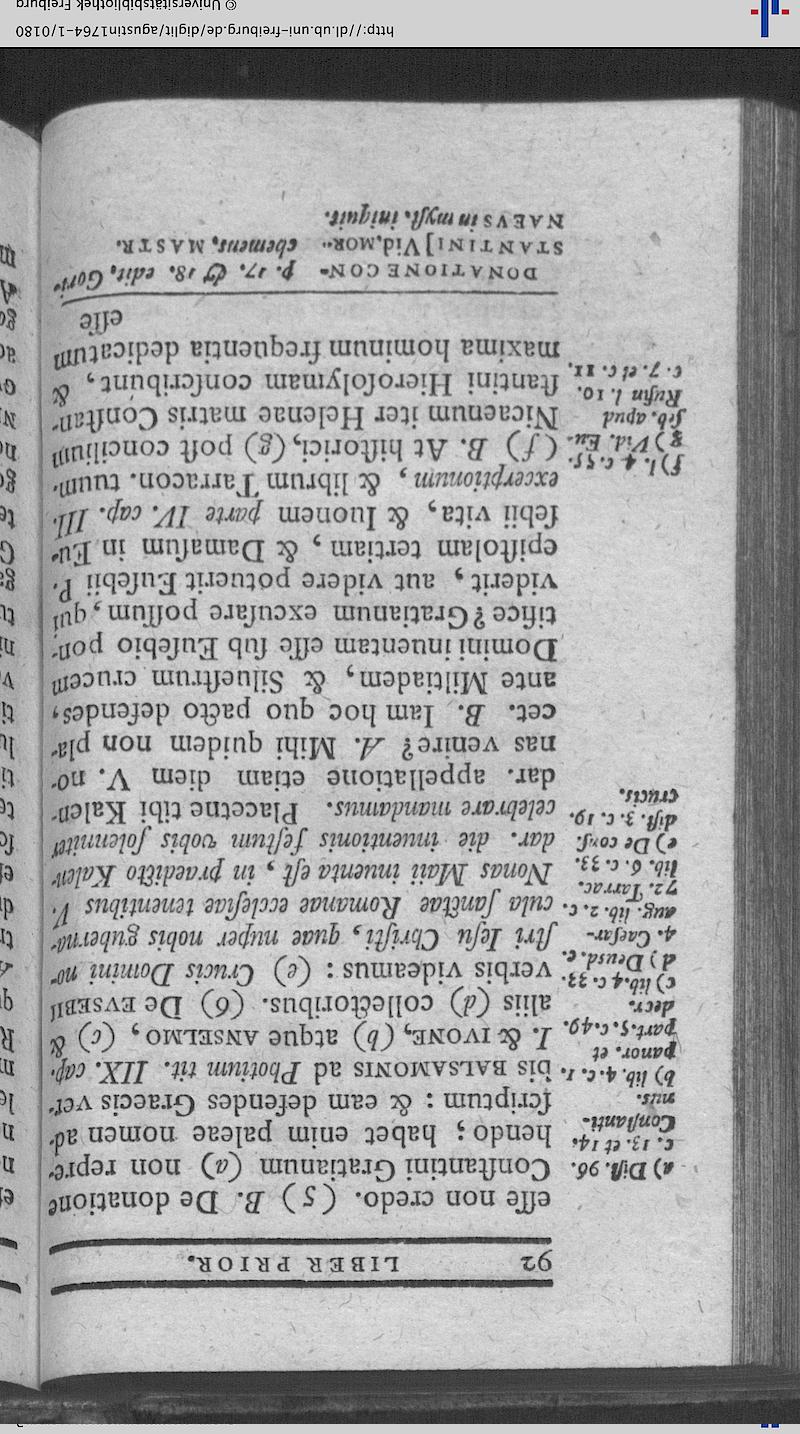 92 LIBER PRIOR.
esse non credo. (5) B. De donatione
Constantini Gratianum (a) non repre-
hendo; habet enim paleae nomen ad-
scriptum: & eam defendes Graecis ver-
bis BALSAMONIS ad Photium tit. IIX. cap.
I. & IVONE, (b) atque ANSELMO, (c) &
aliis (d) collectoribus. (6) De EVSEBII
verbis videamus: (e) Crucis Domini no-
stri Iesu Christi, quae nuper nobis guberna-
cula sanctae Romanae ecclesiae tenentibus V.
Nonas Maii inuenta est, in praedicto Kalen-
dar. die inuentionis festum vobis solenniter
celebrare mandamus. Placetne tibi Kalen-
dar. appellatione etiam diem V. no-
nas venire? A. Mihi quidem non pla-
cet. B. Iam hoc quo pacto defendes,
ante Miltiadem, & Siluestrum crucem
Domini inuentam esse sub Eusebio pon-
tifice? Gratianum excusare possum, qui
viderit, aut videre potuerit Eusebii P.
epistolam tertiam, & Damasum in Eu-
sebii vita, & Iuonem parte IV. cap. III.
excerptionum, & librum Tarracon. tuum.
(f) B. At historici, (g) post concilium
Nicaenum iter Helenae matris Constan-
stantini Hierosolymam conscribunt, &
maxima hominum frequentia dedicatum
esse
a) Dist. 96.
c. 13. et 14.
Constanti-
nus.
b) lib. 4. c. 1.
panor. et
part. 5. c. 49.
decr.
c) lib. 4 c. 33.
d) Deusd. c.
4. Caesar-
aug. lib. 2. c.
72. Tarrac.
lib. 6. c. 33.
e) De cons.
dist. 3. c. 19.
crucis.
f) l. 4 c. 55.
g) Vid. Eu-
seb. apud
Rufin l. 10.
c. 7. et c. 11.
DONATIONE CON-
STANTINI] Vid. MOR-
NAEVS in myst. iniquit.
p. 17. & 18. edit. Gori-
chemens, MASTR.
http://dl.ub.uni-freiburg.de/diglit/augustin1764-1/0180
© Universitätsbibliothek Freiburg